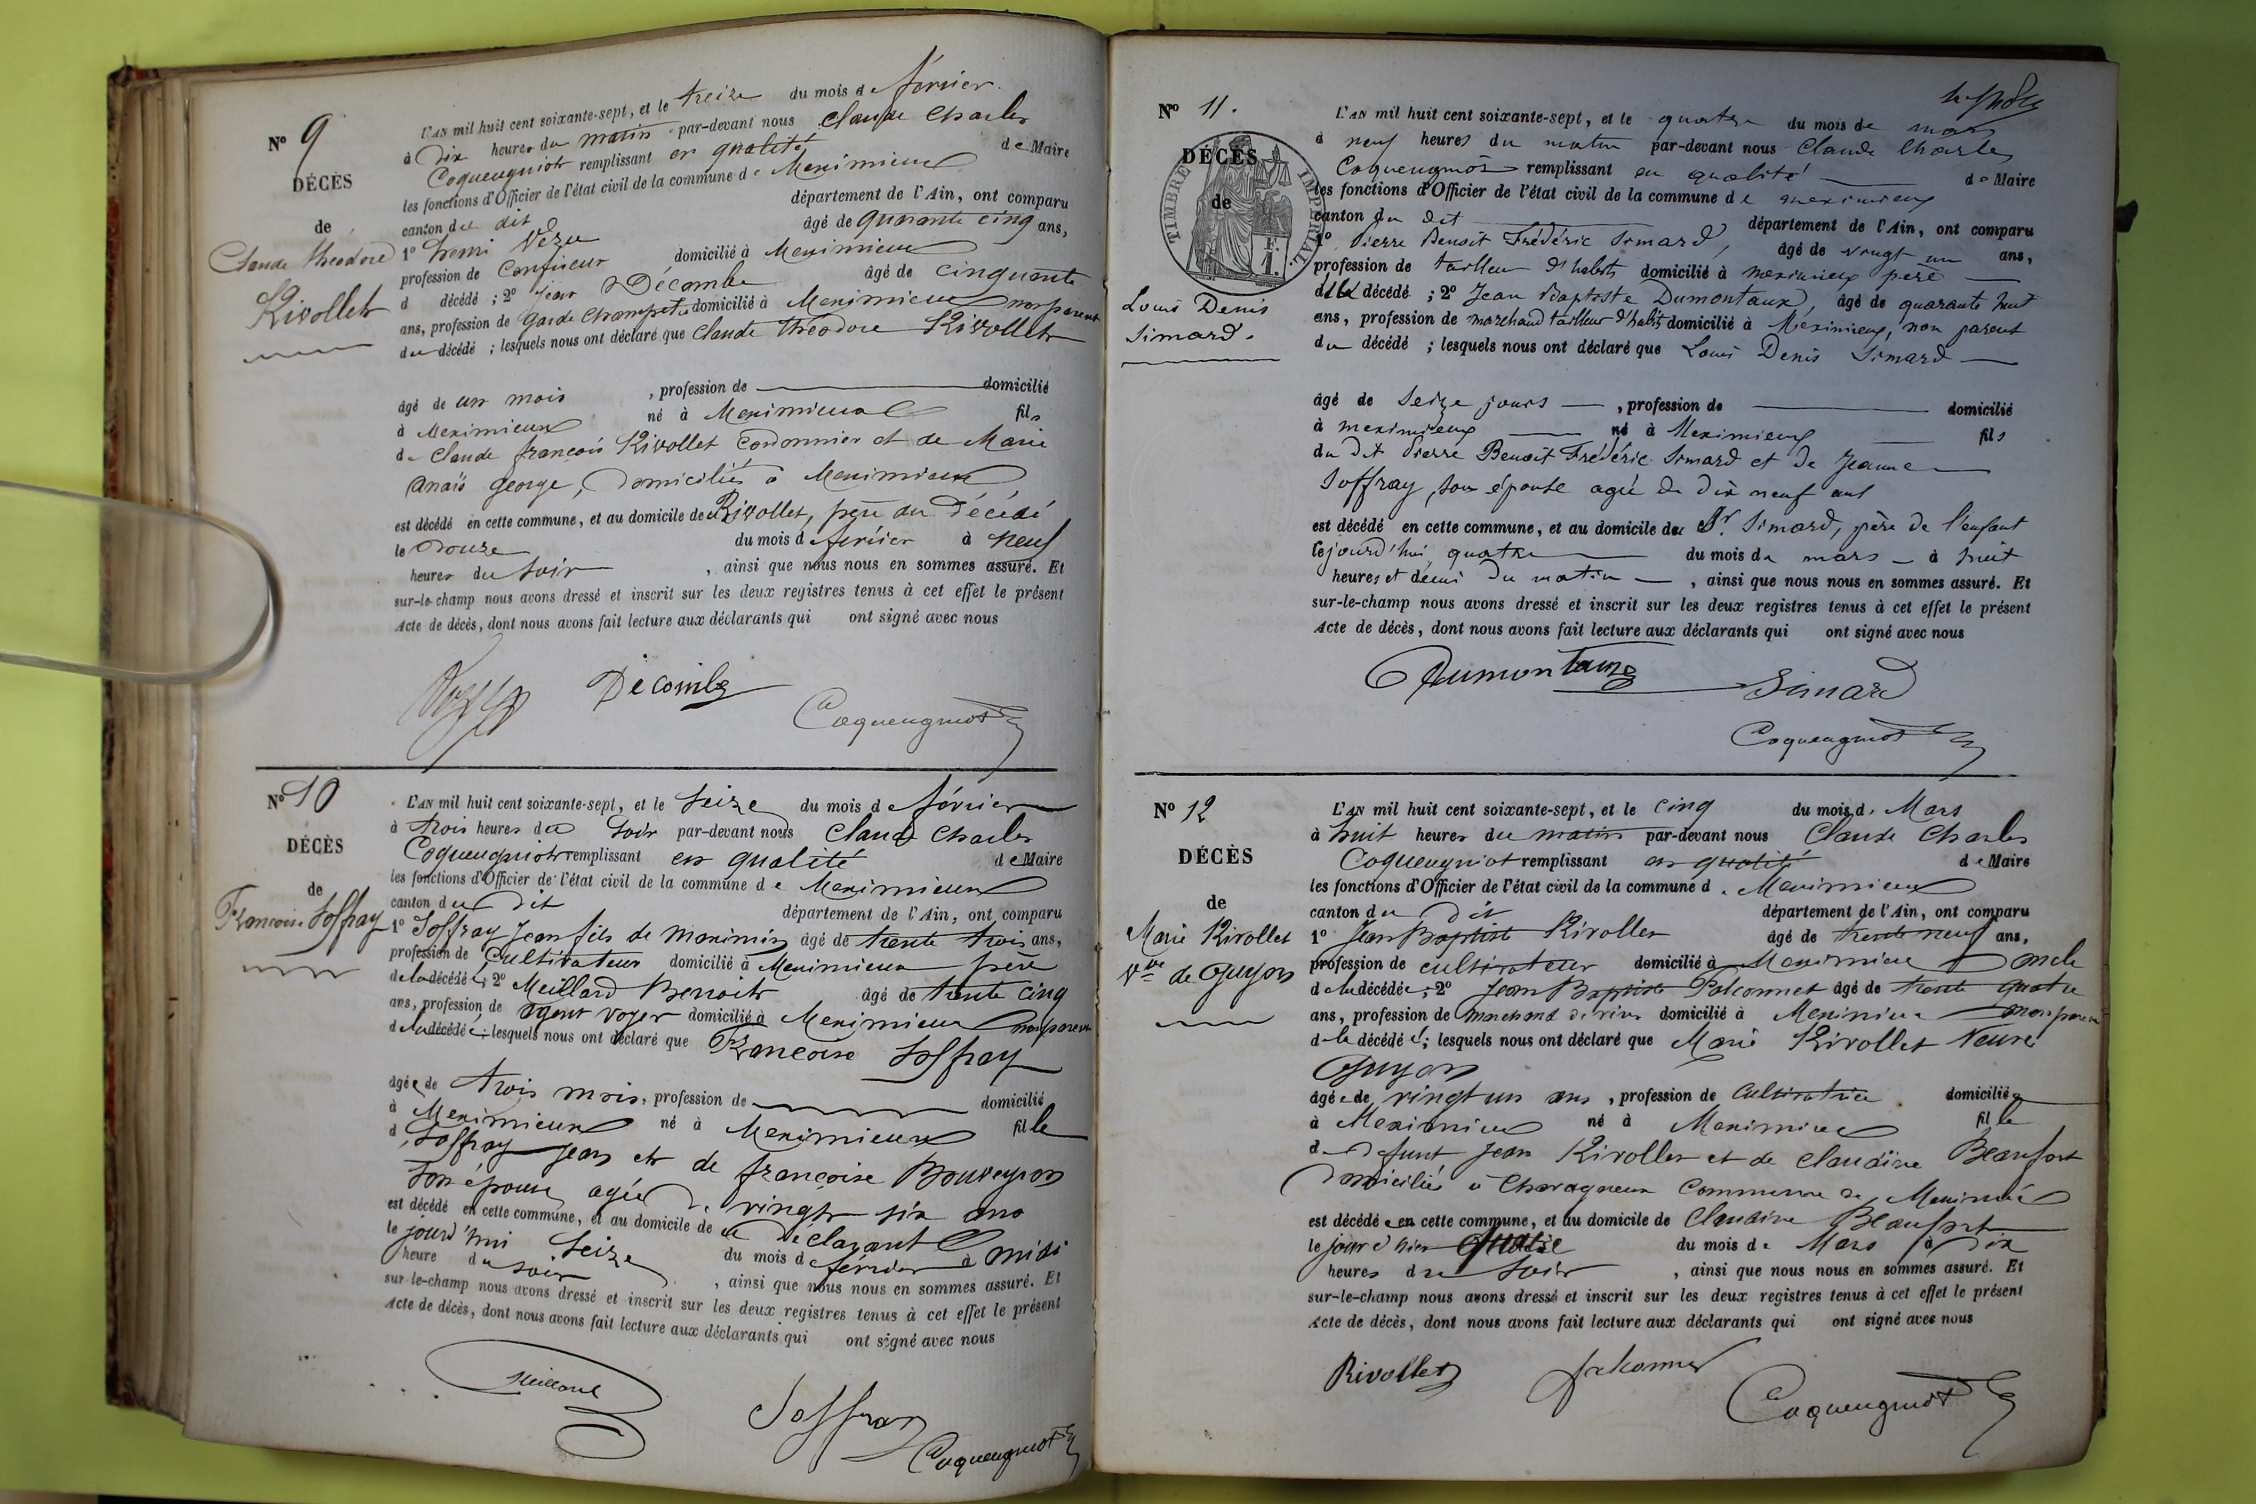 N° 9
DÉCÈS
de
Claude théodore
Rivollet
L'AN mil huit cent soixante-sept, et le treize du mois de février
à Dix heures du matin par-devant nous Claude Charles
Coqueugniot remplissant en qualité de Maire
les fonctions d'Officier de l'état civil de la commune de Meximieux
canton du dit département de l'Ain, ont comparu
1° henri âgé de quarante cinq ans,
profession de Confiseur domicilié à Meximieux
d décédé ; 2° jean Décombe âgé de cinquante
ans, profession de garde champêtre domicilié à Meximieux non parent
du décédé ; lesquels nous ont déclaré que Claude théodore Rivollet
âgé de un mois , profession de domicilié
à Meximieux né à Meximieux fils
de Claude françois Rivollet Cordonnier et de Marie
Anaïs george, Domiciliés à Meximieux
est décédé en cette commune, et au domicile de Rivollet, père du Décédé
le Douze du mois de février à neuf
heures du soir , ainsi que nous nous en sommes assuré. Et
sur-le-champ nous avons dressé et inscrit sur les deux registres tenus à cet effet le présent
Acte de décès, dont nous avons fait lecture aux déclarants qui ont signé avec nous
Décombe
Coqueugniot
N° 10
DÉCÈS
de
Francoise Soffray
L'AN mil huit cent soixante-sept, et le Seize du mois de février
à trois heures du soir par-devant nous Claude Charles
Coqueugniot remplissant en qualité de Maire
les fonctions d'Officier de l'état civil de la commune de Meximieux
canton du dit département de l'Ain, ont comparu
1° Soffray Jean fils de Maximin âgé de trente trois ans,
profession de Cultivateur domicilié à Meximieux père
de la décédée ; 2° Meillard Benoit âgé de trente cinq
ans, profession de agent voyer domicilié à Meximieux non parent
de la décédée ; lesquels nous ont déclaré que Francoise Soffray
âgée de trois mois, profession de domicilié
à Meximieux né à Meximieux fille
d Soffray Jean et de françoise Bouveyron
Son épouse agée de vingt six ans
est décédé en cette commune, et au domicile de déclarant
le jourd'hui Seize du mois de février à midi
heure du soir , ainsi que nous nous en sommes assuré. Et
sur-le-champ nous avons dressé et inscrit sur les deux registres tenus à cet effet le présent
Acte de décès, dont nous avons fait lecture aux déclarants qui ont signé avec nous
Meillard
Soffray
Coqueugniot
N° 11.
DÉCÈS
de
TIMBRE IMPERIAL
Louis Denis
Simard.
L'AN mil huit cent soixante-sept, et le quatre du mois de mars
à neuf heures du matin par-devant nous Claude Charles
Coqueugniot remplissant en qualité de Maire
les fonctions d'Officier de l'état civil de la commune de meximieux
canton du dit département de l'Ain, ont comparu
1° Pierre Benoit Frédéric Simard, âgé de vingt un ans,
profession de tailleur d'habits domicilié à meximieux père
du décédé ; 2° Jean Baptiste Dumontaux, âgé de quarante huit
ans, profession de marchand tailleur d'habits domicilié à Méximieux, non parent
du décédé ; lesquels nous ont déclaré que Louis Denis Simard
âgé de Seize jours , profession de domicilié
à meximieux né à Meximieux fils
du dit Pierre Benoit Frédéric Simard et de Jeanne
Soffray, son épouse agée de dix neuf ans
est décédé en cette commune, et au domicile du Sr. Simard, père de l'enfant
cejourd'hui quatre du mois de mars à huit
heures et demi du matin , ainsi que nous nous en sommes assuré. Et
sur-le-champ nous avons dressé et inscrit sur les deux registres tenus à cet effet le présent
Acte de décès, dont nous avons fait lecture aux déclarants qui ont signé avec nous
Dumontaux
Simard
Coqueugniot
N° 12
DÉCÈS
de
Marie Rivollet
Vve de Guyon
L'AN mil huit cent soixante-sept, et le cinq du mois de Mars
à huit heures du matin par-devant nous Claude Charles
Coqueugniot remplissant en qualité de Maire
les fonctions d'Officier de l'état civil de la commune d Meximieux
canton du dit département de l'Ain, ont comparu
1° Jean Baptiste Rivollet âgé de trente neuf ans,
profession de cultivateur domicilié à Meximieux oncle
de la décédée ; 2° Jean Baptiste Falconnet âgé de trente quatre
ans, profession de marchand de vins domicilié à Meximieux non parent
de la décédée ; lesquels nous ont déclaré que Marie Rivollet Veuve
Guyon
âgée de vingt un ans , profession de Cultivatrice domiciliée
à Meximieux né à Meximieux fille
de defunt Jean Rivollet et de Claudine Beaufort
Domiciliés à Charagneux Commune de Meximieux
est décédée en cette commune, et au domicile de Claudine Beaufort
le jour d'hier quatre du mois de Mars à Dix
heures du Soir , ainsi que nous nous en sommes assuré. Et
sur-le-champ nous avons dressé et inscrit sur les deux registres tenus à cet effet le présent
Acte de décès, dont nous avons fait lecture aux déclarants qui ont signé avec nous
Rivollet
falconnet
Coqueugniot